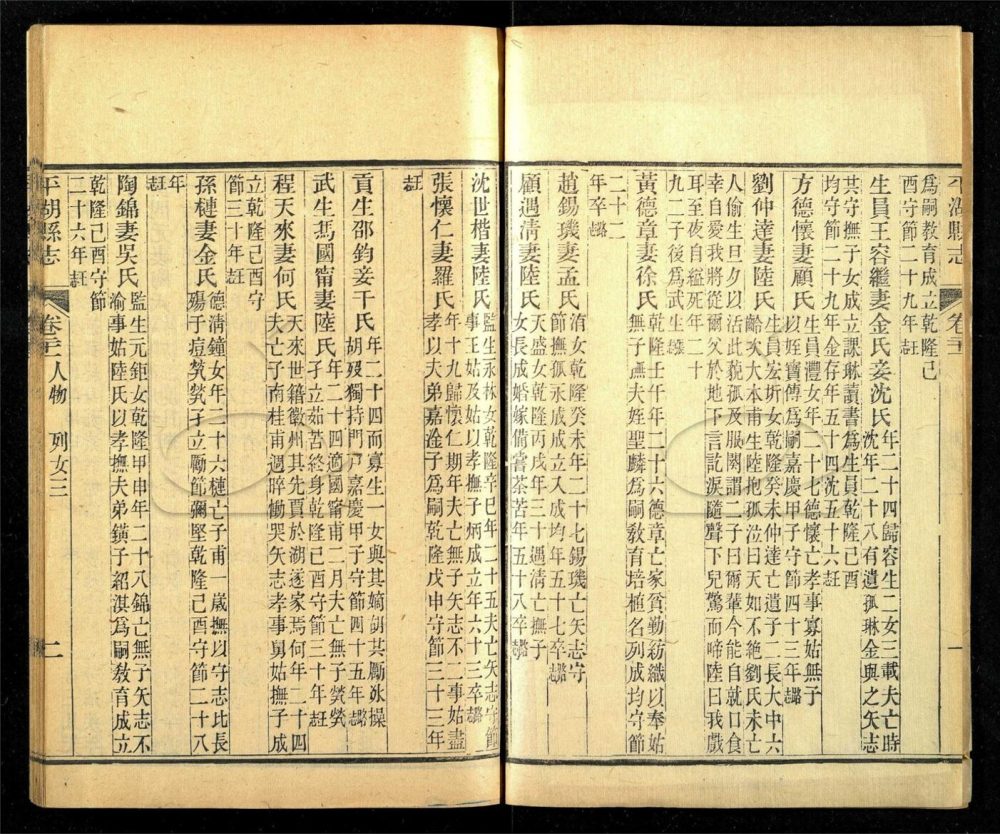 平湖縣志
卷
一
爲嗣教育成立乾隆己
酉守節二十九年旌
生員王容繼妻金氏妾沈氏
年二十四歸容生二女三載夫亡時
沈年二十八有遺孤琳金與之矢志
其守撫子女成立課琳讀書爲生員乾隆己酉
均守節二十九年金存年五十四沈五十六旌
方德懷妻顧氏
生員灃女年二十七德懷亡孝事寡姑無子
以姪寶傳爲嗣嘉慶甲子守節四十三年
劉仲達妻陸氏
生員宏圻女乾隆癸未仲達亡遺子二長大申六
齡次大本甫生陸抱孤泣曰天如不絶劉氏未亡
人偷生旦夕以活此藐孤及服闋謂二子曰爾輩今能自就口食
幸自愛我將從爾父於地下言訖淚隨聲下兒驚而啼陸曰我戲
耳至夜自縊死年二十
九二子後爲武生
黃德章妻徐氏
乾隆壬午年二十六德章亡家貧勤紡織以奉姑
無子撫夫姪聖麟爲嗣教育培植名列成均守節
二十二
年卒
趙錫璣妻孟氏
洧女乾隆癸未年二十七錫璣亡矢志守
節撫孤永成成立入成均年五十七卒
顧遇清妻陸氏
天盛女乾隆丙戌年三十遇清亡撫子
女長成婚嫁備嘗茶苦年五十八卒
沈世楷妻陸氏
監生永林女乾隆辛巳年二十五夫亡矢志守節
事王姑及姑以孝撫子炳成立年六十三卒
張懷仁妻羅氏
年十九歸懷仁期年夫亡無子矢志不二事姑盡
孝以夫弟嘉淦子爲嗣乾隆戊申守節三十三年
旌
貢生邵鈞妾干氏
年二十四而寡生一女與其嫡胡其勵冰操
胡歿獨持門戸嘉慶甲子守節四十五年
武生馬國甯妻陸氏
年二十四適國甯甫二月夫亡無子煢煢
孑立茹苦終身乾隆己酉守節三十年旌
程天來妻何氏
天來世籍徽州其先賈於湖遂家焉何年二十四
夫亡子南桂甫週晬慟哭矢志孝事舅姑撫子成
立乾隆己酉守
節三十年旌
孫槤妻金氏
德淸鐘女年二十六槤亡子甫一歲撫以守志比長
殤于痘煢煢孑立勵節彌堅乾隆己酉守節二十八
年
旌
陶錦妻吳氏
監生元鉅女乾隆甲申年二十八錦亡無子矢志不
渝事姑陸氏以孝撫夫弟鐄子紹淇爲嗣教育成立
乾隆己酉守節
二十六年旌
平湖縣志
卷
人物 列女三
二